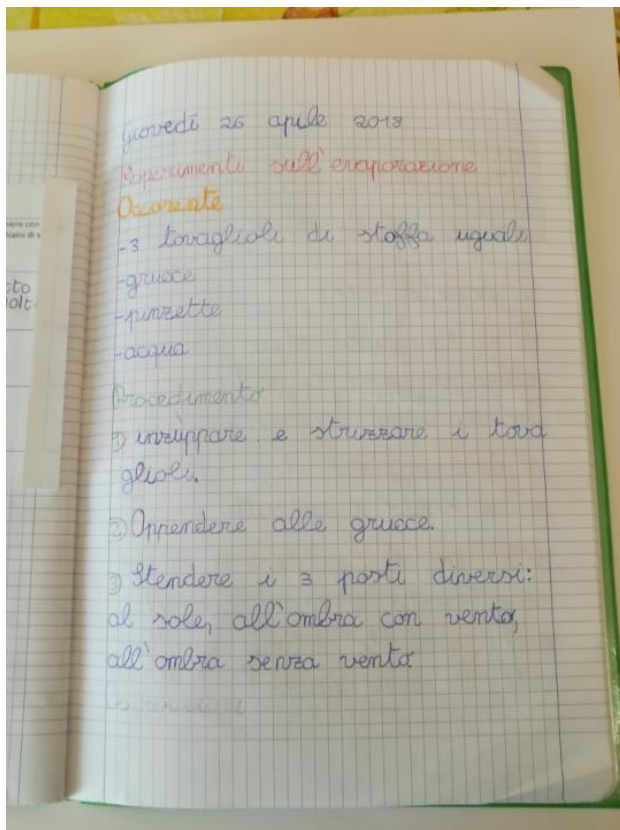 niere con
hiaini di s
cto
olt
Giovedì 26 aprile 2018
Esperimenti sull'evaporazione
Occorente
-3 tovaglioli di stoffa uguali
-grucce
-pinzette
-acqua
Procedimento
1) inzuppare e strizzare i tova
glioli.
2) Appendere alle grucce.
3) Stendere i 3 posti diversi:
al sole, all'ombra con vento,
all'ombra senza vento.